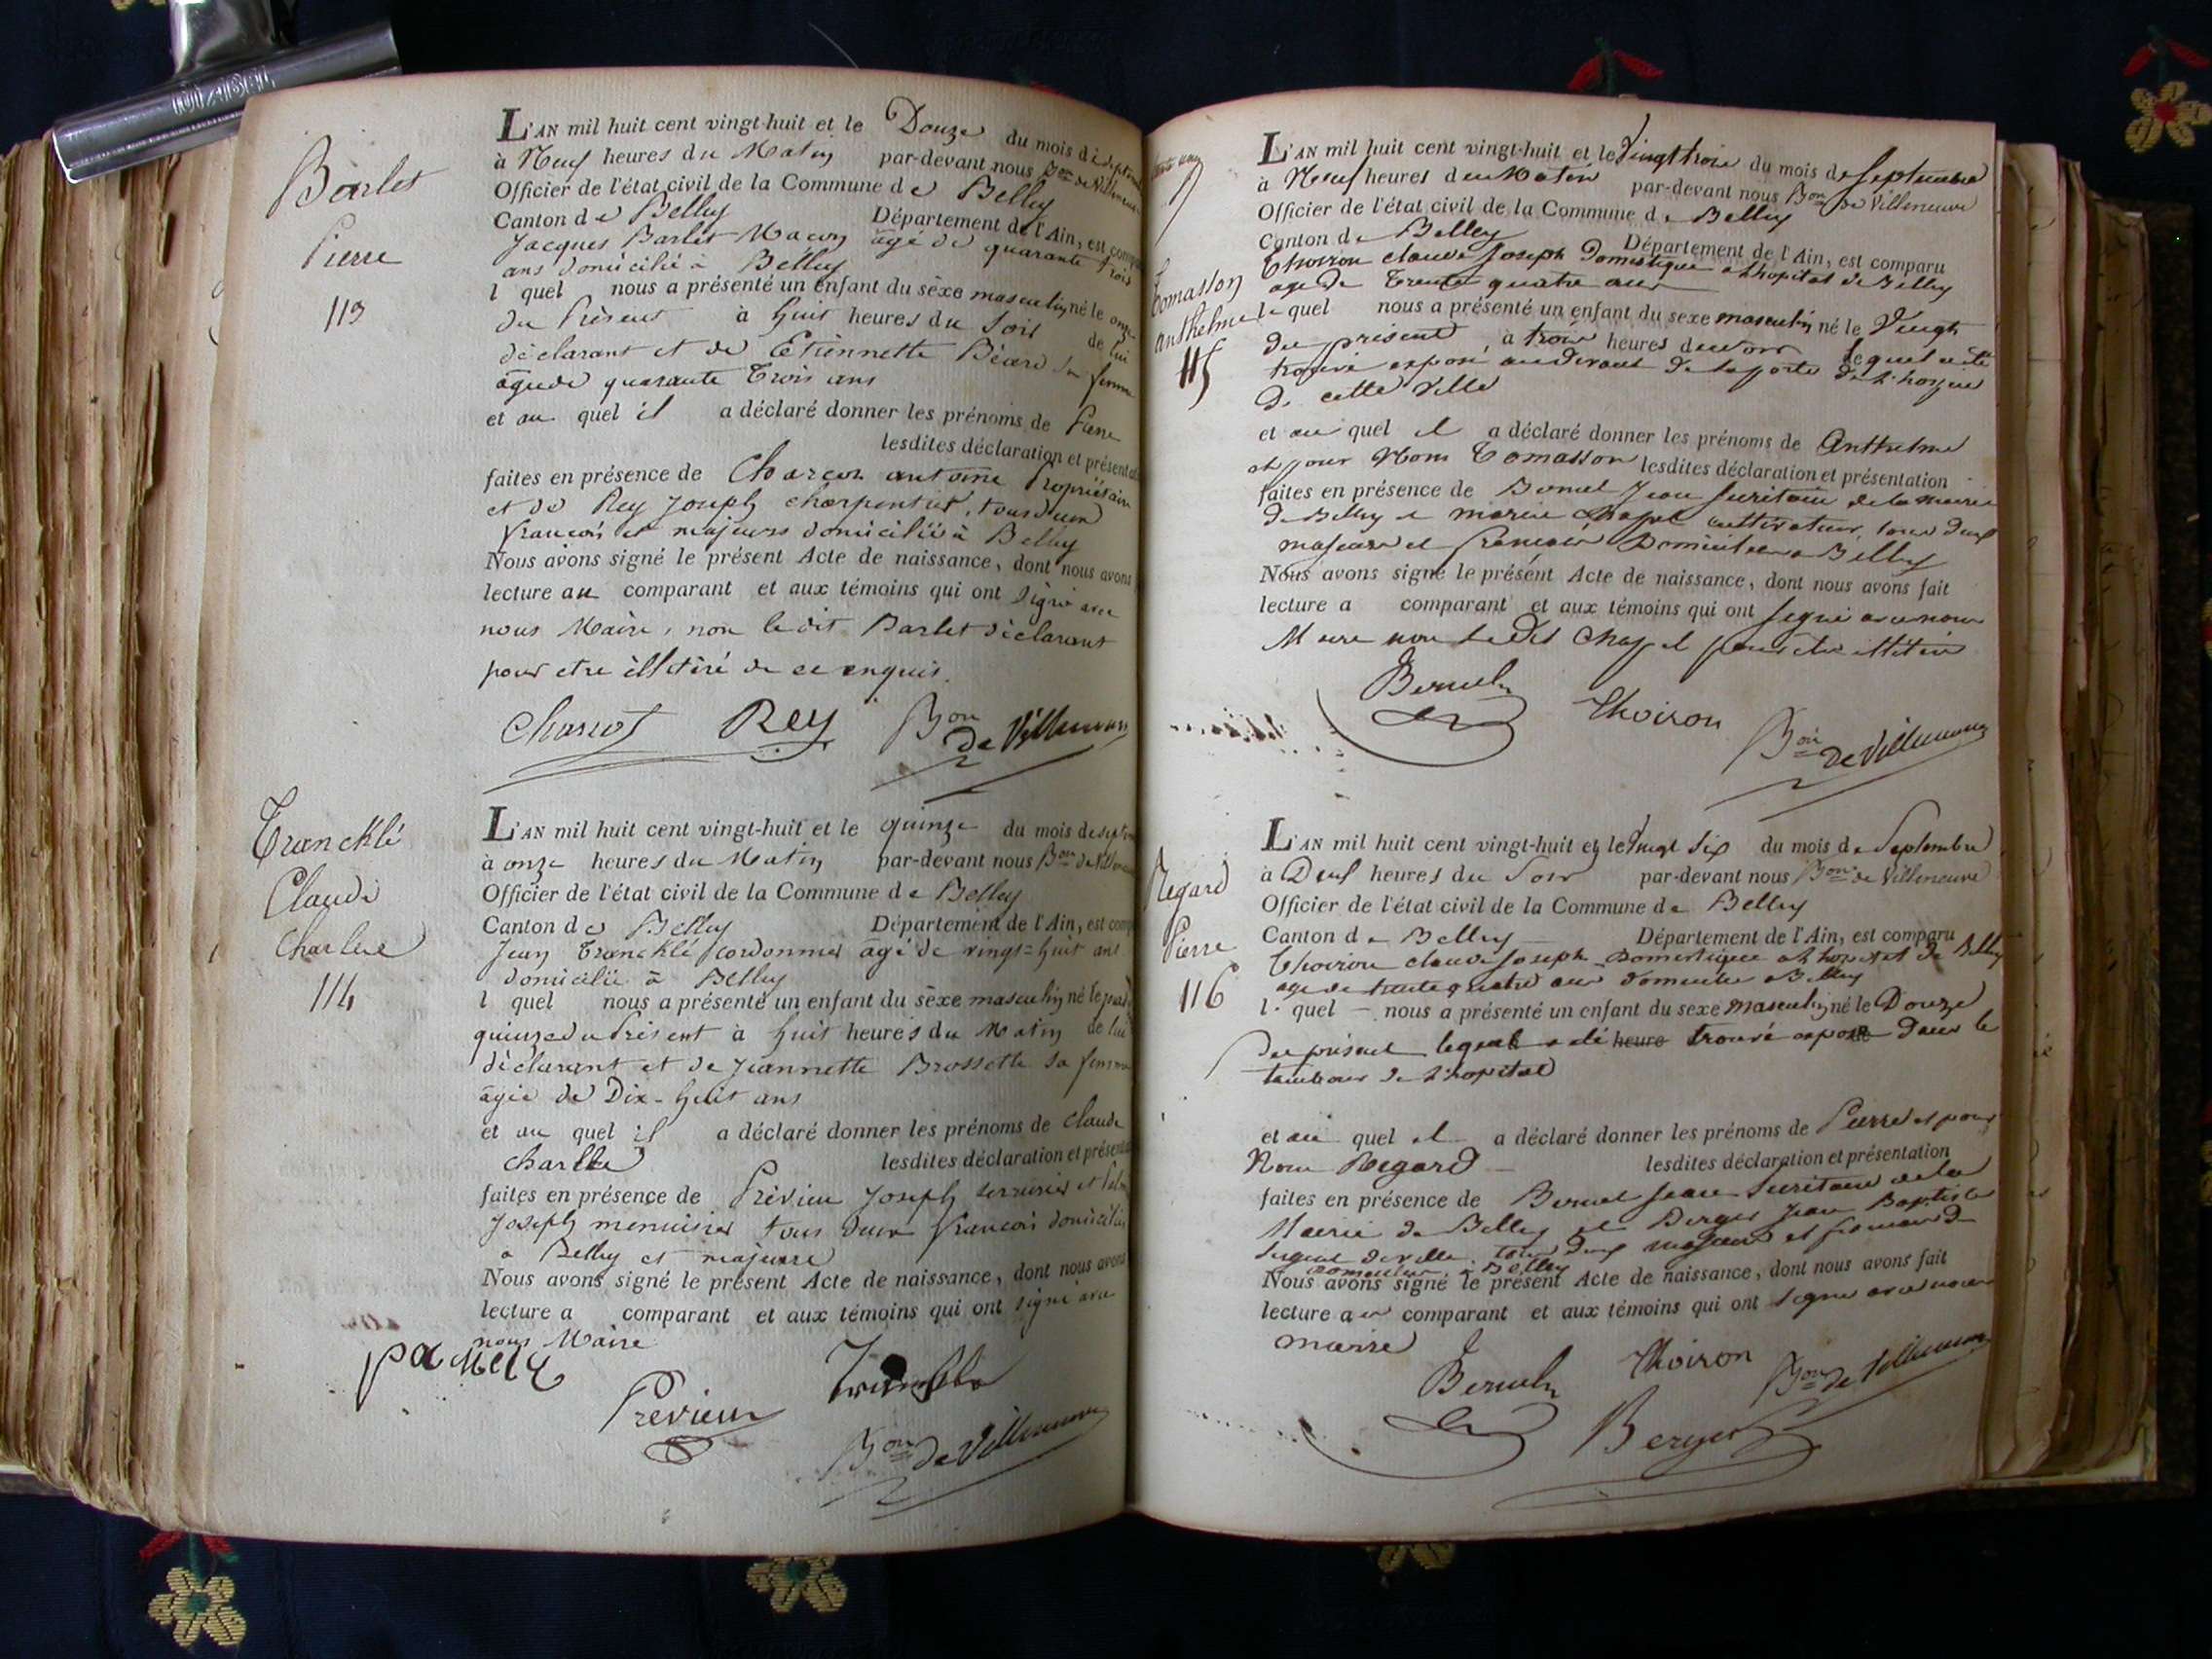 Barlet
Pierre
113
L'AN mil huit cent vingt-huit et le Douze du mois de
à Neuf heures du Matin par-devant nous Bon de
Officier de l'état civil de la Commune de Belley
Canton de Belley Département de l'Ain, est
Jacques Barlet Macon âgé de quarante trois
ans domicilié à Belley
l quel nous a présenté un enfant du sexe masculin né le onze
du Présent à huit heures du Soir de lui
déclarant et de Etiennette Béard sa femme
âgée de quarante Trois ans
et au quel il a déclaré donner les prénoms de Pierre
lesdites déclaration et
faites en présence de antoine Propriétaire
et de Rey Joseph charpentier, tous deux
francais et majeurs domiciliés à Belley
Nous avons signé le présent Acte de naissance, dont nous avons
lecture au comparant et aux témoins qui ont signé avec
nous Maire, non le dit Barlet déclarant
pour etre illitiré de ce enquis.
Rey Bon
de Villeneuve
Tranchlé
Claude
Charles
114
L'AN mil huit cent vingt-huit et le quinze du mois de
à onze heures du Matin par-devant nous Bon de
Officier de l'état civil de la Commune de Belley
Canton de Belley Département de l'Ain, est
Jean cordonnier âgé de vingt-huit ans
domicilié à Belley
l quel nous a présenté un enfant du sexe masculin né le
quinze du Présent à huit heures du Matin de lui
déclarant et de Jeannette Brossette sa femme
âgée de Dix-huit ans
et au quel il a déclaré donner les prénoms de Claude
Charles lesdites déclaration et
faites en présence de Prévieu Joseph serrurier et
Joseph menuisier tous deux francais domiciliés
à Belley et majeurs
Nous avons signé le présent Acte de naissance, dont nous avons
lecture a comparant et aux témoins qui ont signé avec
nous Maire
Prévieux
Bon de Villeneuve
Tomasson
anthelme
115
L'AN mil huit cent vingt-huit et le Vingt trois du mois de Septembre
à Neuf heures du Matin par-devant nous Bon de Villeneuve
Officier de l'état civil de la Commune de Belley
Canton de Belley Département de l'Ain, est comparu
Thoiron claude Joseph Domestique a l'hopital de Belley
age de Trente quatre ans
le quel nous a présenté un enfant du sexe masculin né le Vingt
du présent, à trois heures du soir lequel a été
trouvé exposé au devant de la porte de l'hospice
de cette Ville
et au quel il a déclaré donner les prénoms de Anthelme
et pour Nom Tomasson lesdites déclaration et présentation
faites en présence de Bernel Jean Secrétaire de la mairie
de Belley et cultivateur, tous deux
majeurs et francais Domiciliés a Belley
Nous avons signé le présent Acte de naissance, dont nous avons fait
lecture a comparant et aux témoins qui ont signé avec nous
Maire non le dit Chapel pour etre
Thoiron
Bon de Villeneuve
Regard
Pierre
116
L'AN mil huit cent vingt-huit et le Vingt Six du mois de Septembre
à Deux heures du Soir par-devant nous Bon de Villeneuve
Officier de l'état civil de la Commune de Belley
Canton de Belley Département de l'Ain, est comparu
Thoiron claude Joseph Domestique a l'hopital de Belley
age de trente quatre ans Belley
l quel nous a présenté un enfant du sexe masculin né le Douze
du présent lequel a été heure trouvé exposé dans le
tambour de l'hopital
et au quel il a déclaré donner les prénoms de Pierre et pour
Nom Regard lesdites déclaration et présentation
faites en présence de Bernel Jean Secrétaire de la
Mairie de Belley et Berger Jean Baptiste
Sergent de ville, tous deux majeurs et francais
Domiciliés à Belley
Nous avons signé le présent Acte de naissance, dont nous avons fait
lecture au comparant et aux témoins qui ont signé avec nous
maire
Thoiron Bon de Villeneuve
Berger